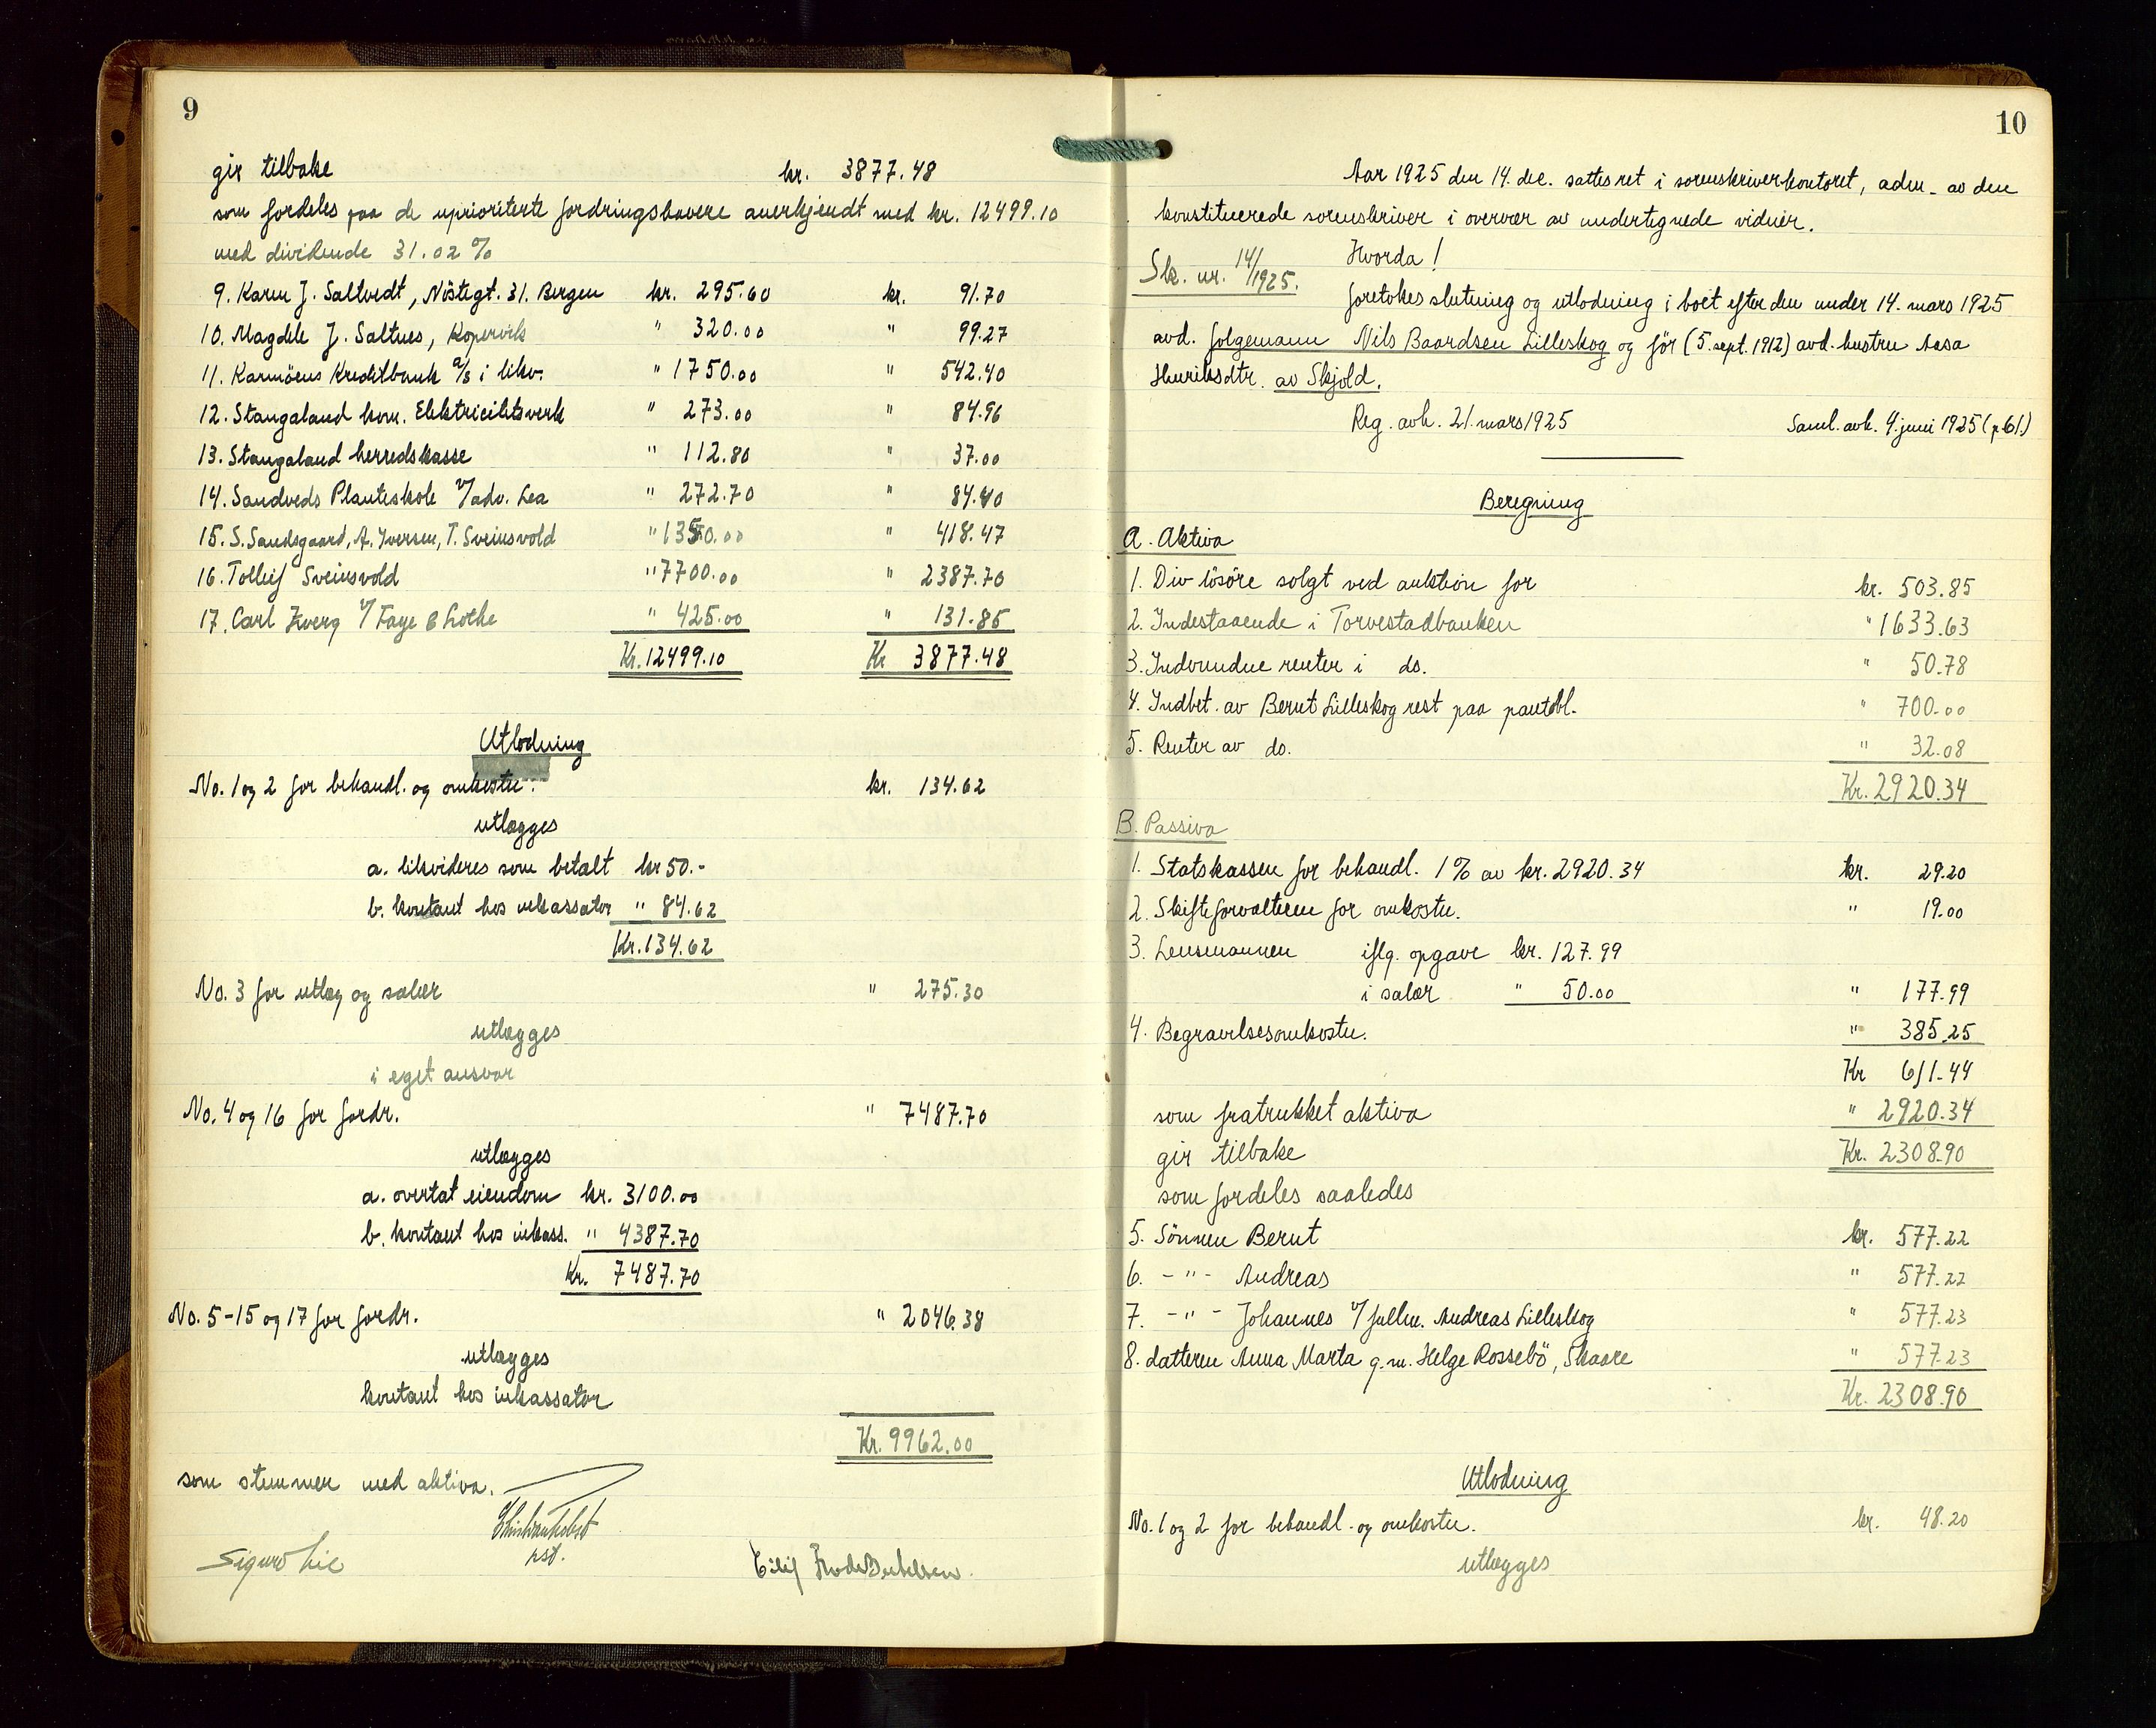 9
gir tilbake kr. 3877.48
som fordeles paa de uprioriterte fordringshavere anerkjendt med kr. 12499.10
med dividende 31.02 %
9. Karen J. Saltvedt, Nöstegt. 31. Bergen kr. 295.60 kr. 91.70
10. Magdele J. Saltnes, Kopervik " 320.00 " 99.27
11. Karmöens Kreditbank a/s i likv. " 1750.00 " 542.40
12. Stangaland kom. Elektricitetsverk " 273.00 " 84.96
13. Stangaland herredskasse " 112.80 " 37.00
14. Sandveds Planteskole v/adv. Lea " 272.70 " 84.40
15. S. Sandsgaard, A. Iversen, T. Sveinsvold " 1350.00 " 418.47
16. Tolleif Sveinsvold " 7700.00 " 2387.70
17. Carl Kverg v/ Faye & Lothe " 425.00 " 131.85
Kr. 12499.10 Kr 3877.48
Utlodning
No. 1 og 2 for behandl. og omkostn. kr. 134.62
utlægges
a. likvideres som betalt kr 50.-
b. kontant hos inkassator " 84.62
Kr. 134.62
No. 3 for utlæg og salær " 275.30
utlægges
i eget ansvar
No. 4 og 16 for fordr. " 7487.70
utlægges
a. overtat eiendom kr. 3100.00
b. kontant hos inkass. " 4387.70
Kr. 7487.70
No. 5-15 og 17 for fordr. " 2046.38
utlægges
kontant hos inkassator
Kr. 9962.00
som stemmer med aktiva.
kst.
Sigurd Lie
10
Aar 1925 den 14. dec. sattes ret i sorenskriverkontoret, adm. av den
konstituerede sorenskriver i overvær av undertegnede vidner.
Hvorda!
Sk. nr. 14/1925.
foretokes slutning og utlodning i boet efter den under 14. mars 1925
avd. folgemann Nils Baardsen Lilleskog og för (5. sept. 1912) avd. hustru Aasa
Henriksdtr. av Skjold.
Reg. avh. 21. mars 1925 Saml. avh. 4. juni 1925 (p. 61.)
Beregning
A. Aktiva
1. Div lösöre solgt ved auktion for kr. 503.85
2. Indestaaende i Torvestadbanken " 1633.63
3. Indvundne renter i do. " 50.78
4. Indbet. av Bernt Lilleskog rest paa pantobl. " 700.00
5. Renter av do. " 32.08
Kr. 2920.34
B. Passiva
1. Statskassen for behandl. 1 % av kr. 2920.34 kr. 29.20
2. Skifteforvalteren for omkostn. " 19.00
3. Lensmannen iflg. opgave kr. 127.99
i salær " 50.00 " 177.99
4. Begravelsesomkostn. " 385.25
Kr 611.44
som fratrukket aktiva " 2920.34
gir tilbake Kr. 2308.90
som fordeles saaledes
5. Sönnen Bernt kr. 577.22
6. - " - Andreas " 577.22
7. - " - Johannes v/ fullm. Andreas Lilleskog " 577.23
8. datteren Anna Marta g.m. Helge Rossebö, Skaare " 577.23
Kr. 2308.90
Utlodning
No. 1 og 2 for behandl. og omkostn. kr. 48.20
utlægges